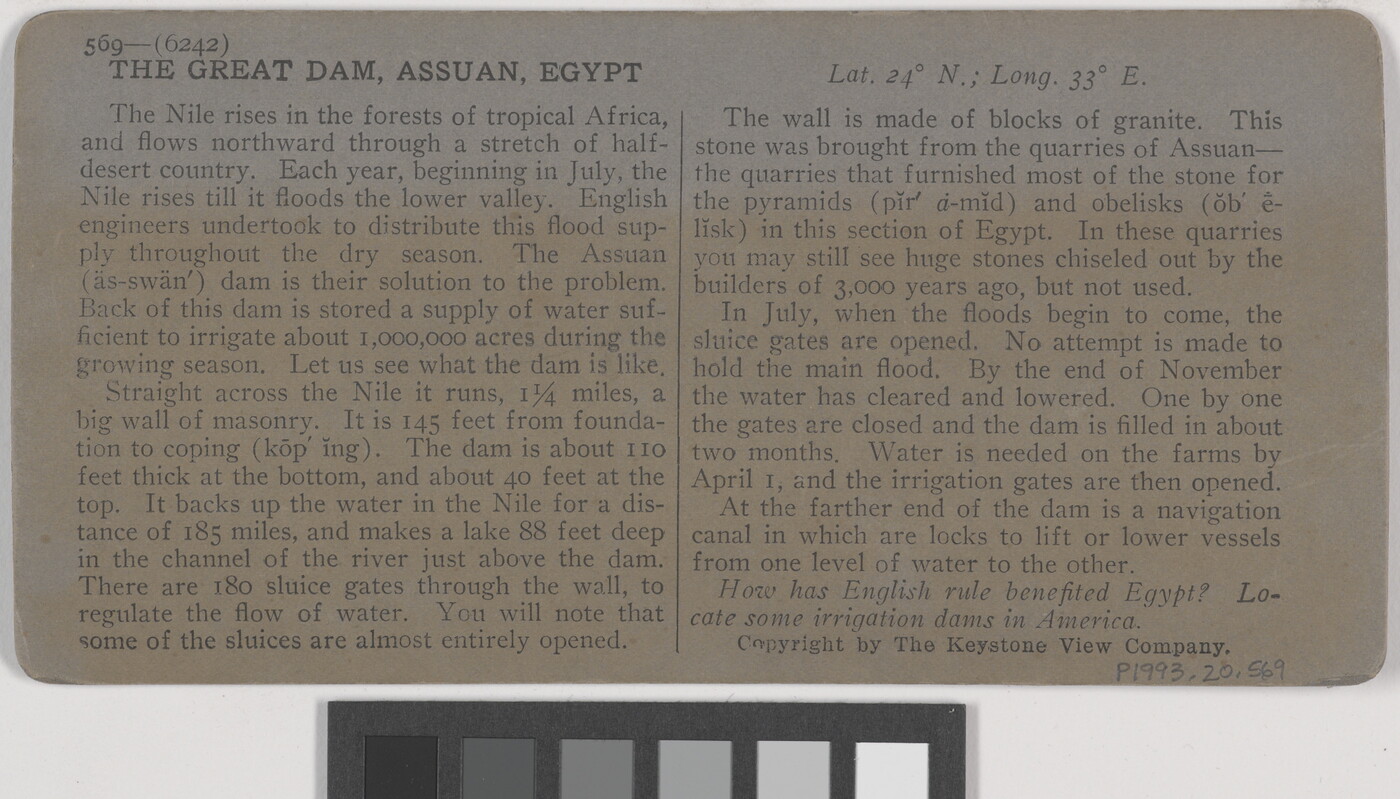 569—(6242)
THE GREAT DAM, ASSUAN, EGYPT
Lat. 24° N.; Long. 33° E.
The Nile rises in the forests of tropical Africa,
and flows northward through a stretch of half-
desert country. Each year, beginning in July, the
Nile rises till it floods the lower valley. English
engineers undertook to distribute this flood sup-
ply throughout the dry season. The Assuan
(äs-swän′) dam is their solution to the problem.
Back of this dam is stored a supply of water suf-
ficient to irrigate about 1,000,000 acres during the
growing season. Let us see what the dam is like.
Straight across the Nile it runs, 1¼ miles, a
big wall of masonry. It is 145 feet from founda-
tion to coping (kōp′ ĭng). The dam is about 110
feet thick at the bottom, and about 40 feet at the
top. It backs up the water in the Nile for a dis-
tance of 185 miles, and makes a lake 88 feet deep
in the channel of the river just above the dam.
There are 180 sluice gates through the wall, to
regulate the flow of water. You will note that
some of the sluices are almost entirely opened.
The wall is made of blocks of granite. This
stone was brought from the quarries of Assuan—
the quarries that furnished most of the stone for
the pyramids (pĭr′ ȧ-mĭd) and obelisks (ŏb′ ḗ-
lĭsk) in this section of Egypt. In these quarries
you may still see huge stones chiseled out by the
builders of 3,000 years ago, but not used.
In July, when the floods begin to come, the
sluice gates are opened. No attempt is made to
hold the main flood. By the end of November
the water has cleared and lowered. One by one
the gates are closed and the dam is filled in about
two months. Water is needed on the farms by
April 1, and the irrigation gates are then opened.
At the farther end of the dam is a navigation
canal in which are locks to lift or lower vessels
from one level of water to the other.
How has English rule benefited Egypt? Lo-
cate some irrigation dams in America.
Copyright by The Keystone View Company.
P1993.20.569